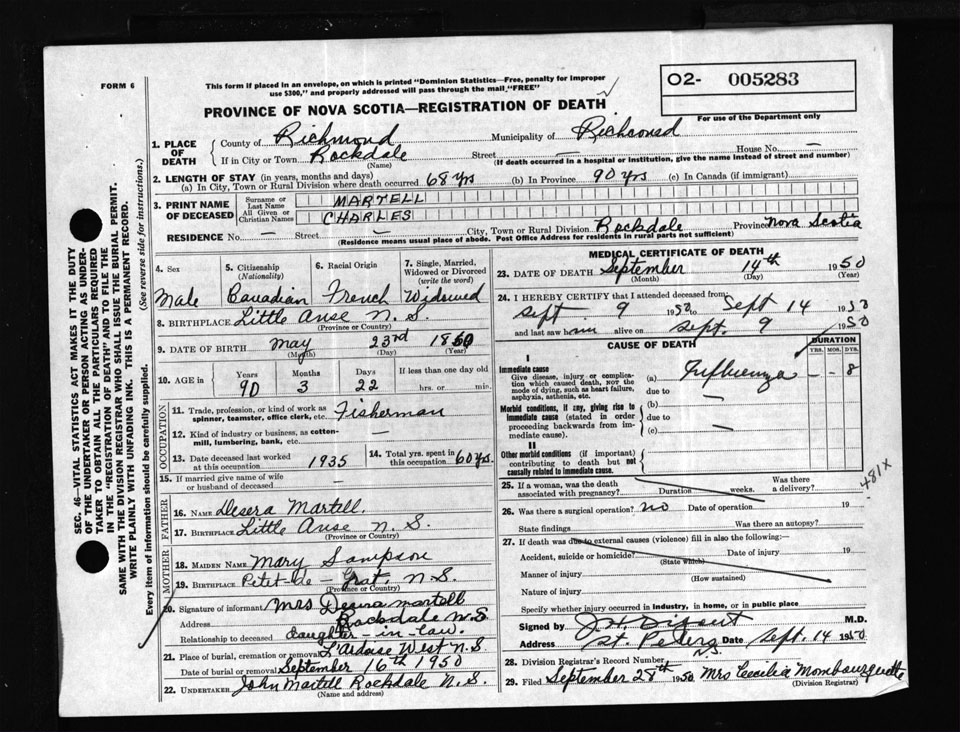 FORM 6
This form if placed in an envelope, on which is printed "Dominion Statistics—Free, penalty for improper
use $300," and properly addressed will pass through the mail "FREE"
O2- 005283
For use of the Department only
PROVINCE OF NOVA SCOTIA—REGISTRATION OF DEATH
1. PLACE OF DEATH
County of Richmond Municipality of Richmond
If in City or Town Rockdale Street — House No. —
(Name) (If death occurred in a hospital or institution, give the name instead of street and number)
2. LENGTH OF STAY (in years, months and days)
(a) In City, Town or Rural Division where death occurred 68 yrs (b) In Province 90 yrs (c) In Canada (if immigrant)
3. PRINT NAME OF DECEASED
Surname or Last Name MARTELL
All Given or Christian Names CHARLES
RESIDENCE No. — Street — City, Town or Rural Division Rockdale Province Nova Scotia
(Residence means usual place of abode. Post Office Address for residents in rural parts not sufficient)
4. Sex
Male
5. Citizenship (Nationality)
Canadian
6. Racial Origin
French
7. Single, Married, Widowed or Divorced (write the word)
Widowed
8. BIRTHPLACE Little Anse N.S.
(Province or Country)
9. DATE OF BIRTH May 23rd 1860
(Month) (Day) (Year)
10. AGE in Years Months Days If less than one day old
90 3 22 hrs. or min.
OCCUPATION
11. Trade, profession, or kind of work as spinner, teamster, office clerk, etc. Fisherman
12. Kind of industry or business, as cotton-mill, lumbering, bank, etc. —
13. Date deceased last worked at this occupation 1935
14. Total yrs. spent in this occupation 60 yrs.
15. If married give name of wife or husband of deceased —
FATHER
16. Name Desera Martell
17. Birthplace Little Anse N.S.
(Province or Country)
MOTHER
18. MAIDEN NAME Mary Sampson
19. BIRTHPLACE Petit-de-Grat, N.S.
(Province or Country)
20. Signature of informant Mrs Desira Martell
Address Rockdale N.S
Relationship to deceased daughter-in-law.
21. Place of burial, cremation or removal L'Ardoise West N.S.
Date of burial or removal September 16th 1950
22. UNDERTAKER John Martell Rockdale N.S.
(Name and address)
MEDICAL CERTIFICATE OF DEATH
23. DATE OF DEATH September 14th 1950
(Month) (Day)
24. I HEREBY CERTIFY that I attended deceased from
Sept 9 1950 to Sept 14 1950
and last saw him alive on Sept. 9 1950
CAUSE OF DEATH
DURATION
YRS. MOS. DYS.
I
Immediate cause
Give disease, injury or complication which caused death, NOT the mode of dying, such as heart failure, asphyxia, asthenia, etc.
(a) Influenza — — 8
due to
Morbid conditions, if any, giving rise to immediate cause (stated in order proceeding backwards from immediate cause).
(b) —
due to
(c) —
II
Other morbid conditions (if important) contributing to death but not causally related to immediate cause.
481X
25. If a woman, was the death associated with pregnancy? Duration weeks. Was there a delivery?
26. Was there a surgical operation? no Date of operation 19
State findings Was there an autopsy?
27. If death was due to external causes (violence) fill in also the following:
Accident, suicide or homicide? Date of injury 19
(State which)
Manner of injury
(How sustained)
Nature of injury
Specify whether injury occurred in industry, in home, or in public place
Signed by M.D.
Address St. Peters N.S. Date Sept. 14 1950
28. Division Registrar's Record Number
29. Filed September 28th 1950 Mrs Cecilia Mombourquette
(Division Registrar)
SEC. 46—VITAL STATISTICS ACT MAKES IT THE DUTY
OF THE UNDERTAKER OR PERSON ACTING AS UNDER-
TAKER TO OBTAIN ALL THE PARTICULARS REQUIRED
IN THE "REGISTRATION OF DEATH" AND TO FILE THE
SAME WITH THE DIVISION REGISTRAR WHO SHALL ISSUE THE BURIAL PERMIT.
WRITE PLAINLY WITH UNFADING INK. THIS IS A PERMANENT RECORD.
Every item of information should be carefully supplied. (See reverse side for instructions.)